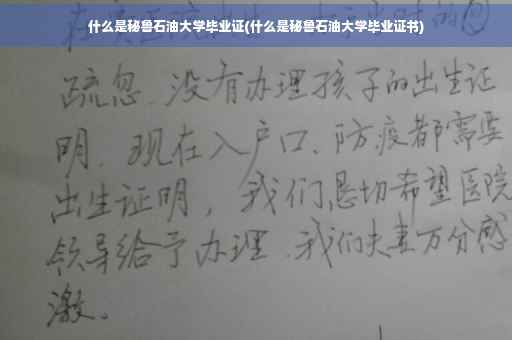 什么是秘鲁石油大学毕业证(什么是秘鲁石油大学毕业证书)
疏忽、没有办理孩子的出生证
明、现在入户口、防疫都需要
出生证明，我们恳切希望医院
领导给予办理、我们夫妻万分感
激。